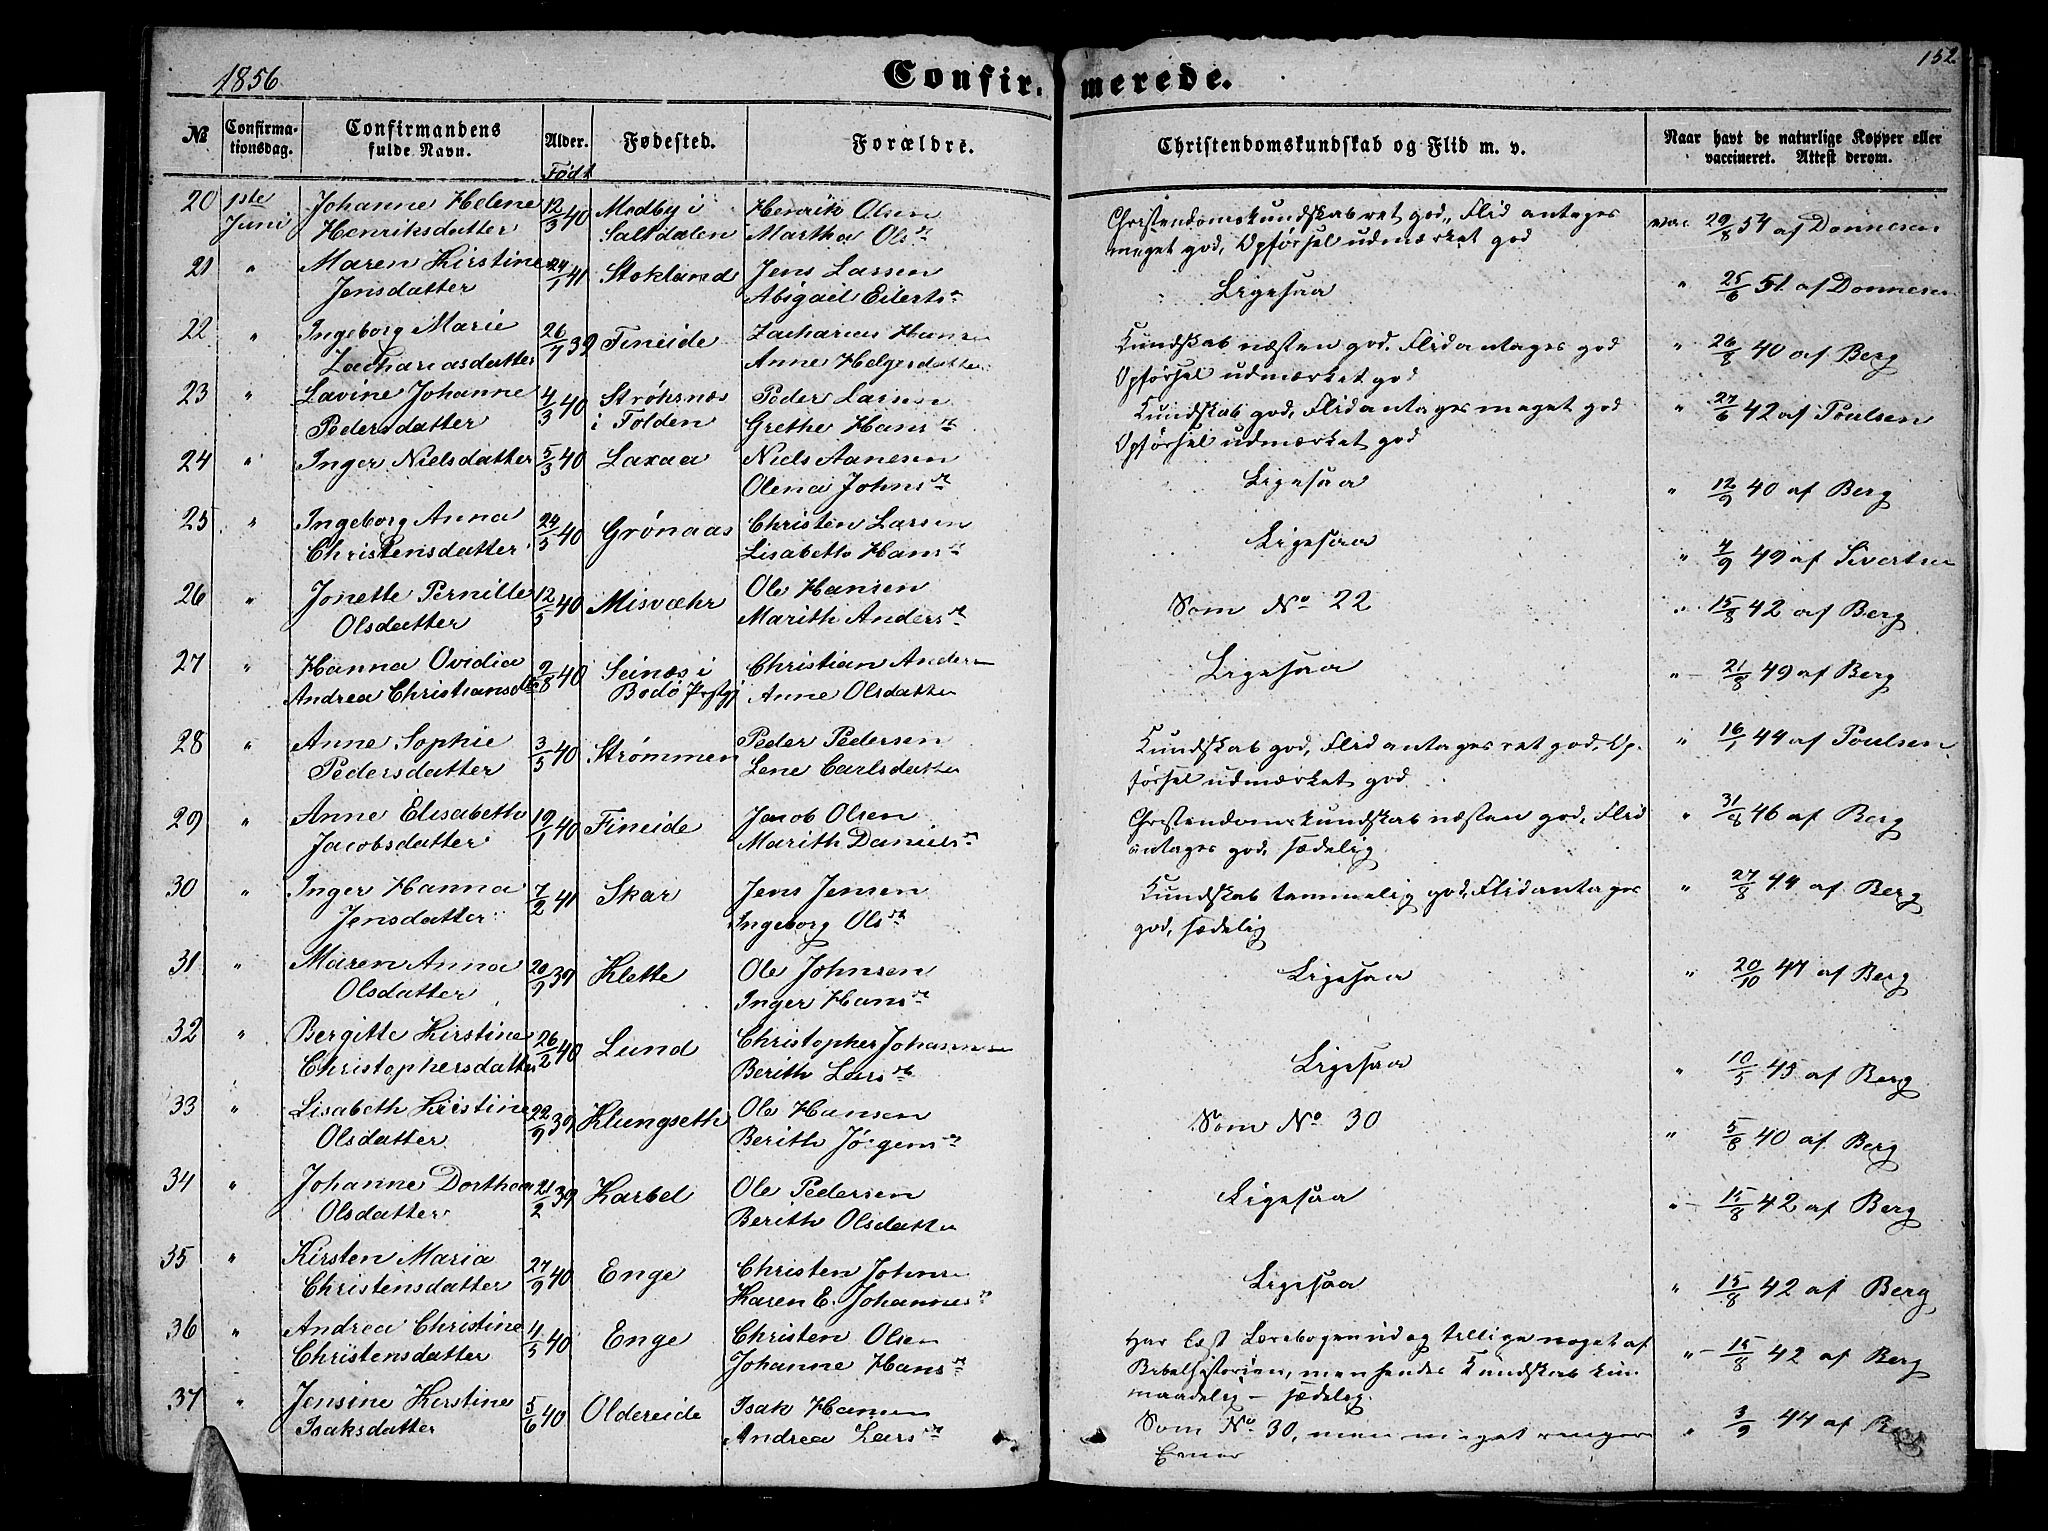 152
1856
Confir. merede.
№
Confirma-
tionsdag.
Confirmandens
fulde Navn.
Alder.
Født
Fødested.
Forældre.
Christendomskundskab og Flid m. v.
Naar havt de naturlige Kopper eller
vaccineret. Attest derom.
20 1ste Johanne Helene 12/3 40 Medby i Henrik Olsen Christendomskundskab ret god, Flid antages vac. 29/8 54 af Donnesen
Juni Henriksdatter Saltdalen Martha Olsdr meget god, Opførsel udmærket god
21 " Maren Kirstine 24/1 41 Stokland Jens Larsen Ligesaa " 25/6 51 af Donnesen
Jensdatter Abigail Eilertsdr
22 " Ingeborg Marie 26/7 39 Fineide Zacharias Hansen Kundskab næsten god. Flid antages god " 26/8 40 af Berg
Zachariasdatter Anne Helgesdatter Opførsel udmærket god
23 " Lavine Johanne 4/3 40 Strøksnæs Peder Larsen Kundskab god, Flid antages meget god " 27/6 42 af Poulsen
Pedersdatter i Folden Grethe Hansdr Opførsel udmærket god
24 " Inger Nielsdatter 5/3 40 Laxaa Niels Aanesen Ligesaa " 12/9 40 af Berg
Olena Johnsdr
25 " Ingeborg Anna 24/5 40 Grønaas Christen Larsen Ligesaa " 4/9 49 af Sivertsen
Christensdatter Lisabeth Hansdr
26 " Jonette Pernille 12/5 40 Misvæhr Ole Hansen Som No 22 " 15/8 42 af Berg
Olsdatter Marith Andersdr
27 " Hanna Ovidia 2/8 40 Seinæs i Christian Andersen Ligesaa " 21/8 49 af Berg
Andrea Christiansdtr Bodø Prstgj Anne Olsdatter
28 " Anne Sophie 3/5 40 Strømmen Peder Pedersen Kundskab god, Flid antages ret god, Op- " 16/1 44 af Poulsen
Pedersdatter Lene Carlsdatter førsel udmærket god
29 " Anne Elisabeth 19/1 40 Fineide Jacob Olsen Christendomskundskab næsten god, Flid " 31/8 46 af Berg
Jacobsdatter Marith Danielsdr antages god, sædelig
30 " Inger Hanna 7/2 41 Skar Jens Jensen Kundskab temmelig god, Flid antages " 27/8 44 af Berg
Jensdatter Ingeborg Olsdr god, sædelig
31 " Maren Anna 20/9 39 Klette Ole Johnsen Ligesaa " 20/10 47 af Berg
Olsdatter Inger Hansdr
32 " Bergitte Kirstine 26/2 40 Lund Christopher Johannesen Ligesaa " 10/5 45 af Berg
Christophersdatter Berith Larsdr
33 " Lisabeth Kirstine 22/9 39 Klungseth Ole Hansen Som No 30 " 5/8 40 af Berg
Olsdatter Berith Jørgensdr
34 " Johanne Dorthea 21/2 39 Karbel Ole Pedersen Ligesaa " 15/8 42 af Berg
Olsdatter Berith Olsdatter
35 " Kirsten Maria 27/9 40 Enge Christen Johnsen Ligesaa " 15/8 42 af Berg
Christensdatter Karen E. Johannesdr
36 " Andrea Christine 4/5 40 Enge Christen Olsen Har læst Lærebogen ud og tillige noget af " 15/8 42 af Berg
Christensdatter Johanne Hansdr Bibelhistorien, men hendes Kundskab kun
maadelig – sædelig.
37 " Jensine Kirstine 5/6 40 Oldereide Isak Hansen Som No 30, men meget ringe " 3/9 44 af Berg
Isaksdatter Andrea Larsdr Evner